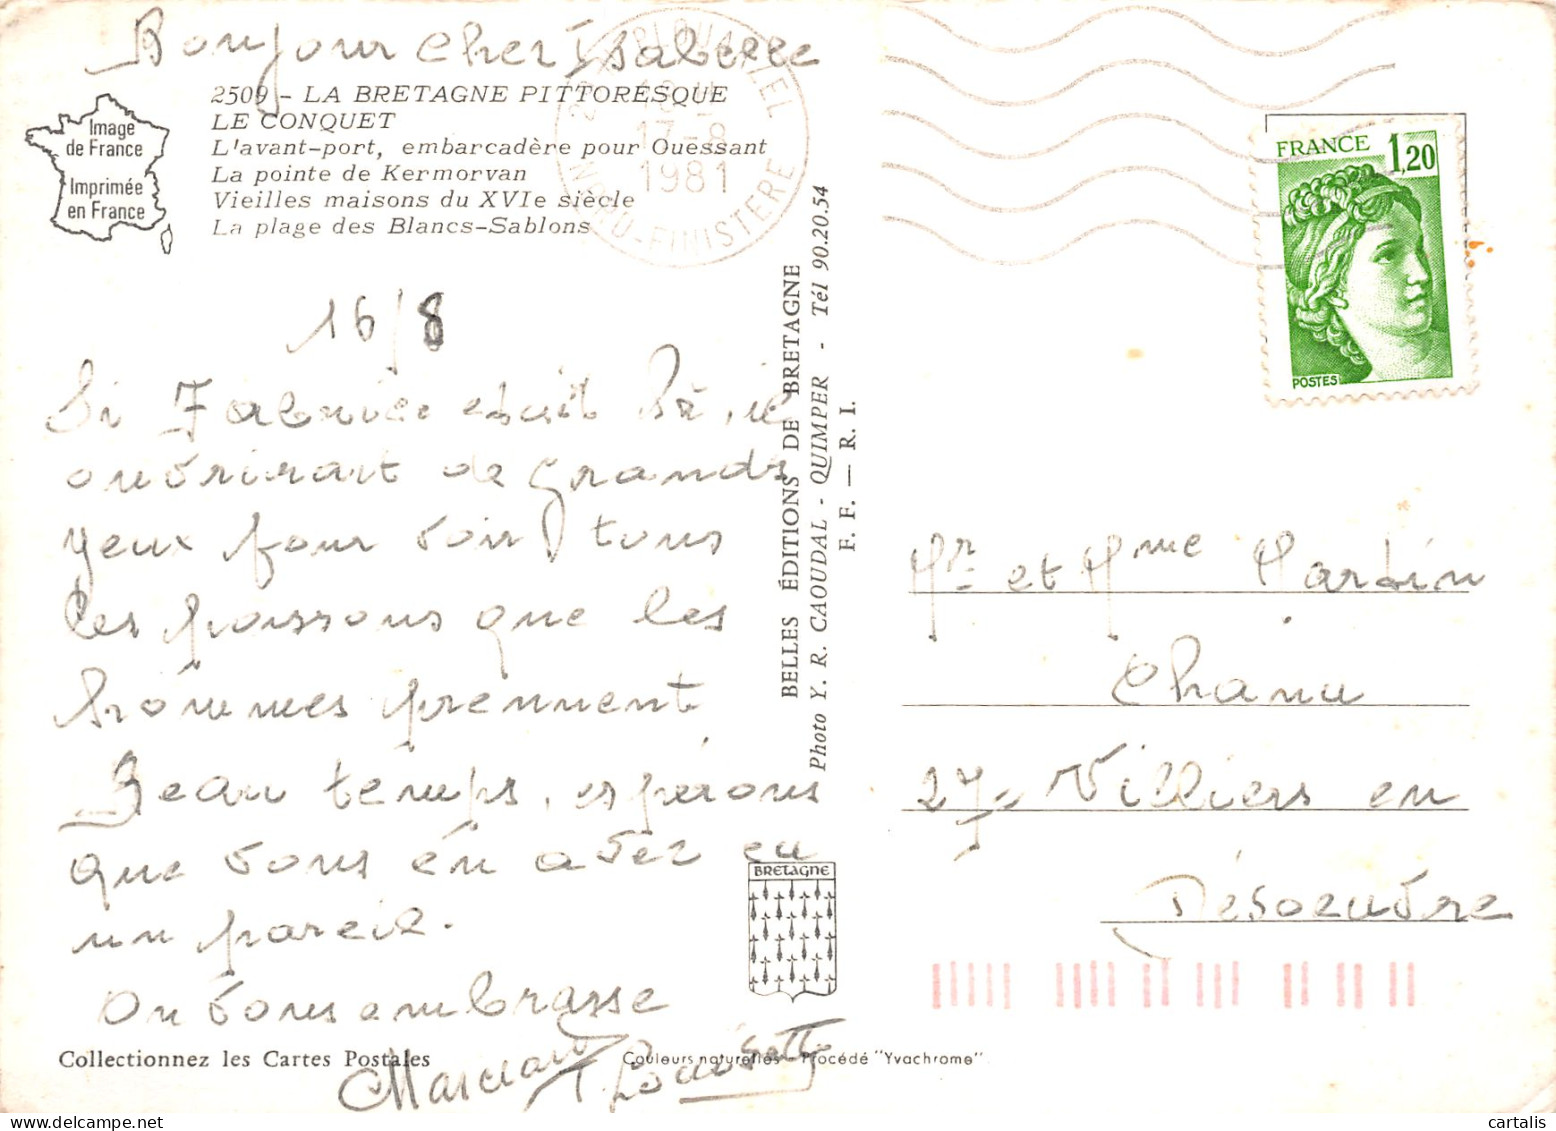 Bonjour cher Isabelle
2509 - LA BRETAGNE PITTORESQUE
LE CONQUET
L'avant-port, embarcadère pour Ouessant
La pointe de Kermorvan
Vieilles maisons du XVIe siècle
La plage des Blancs-Sablons
Image
de France
Imprimée
en France
17-8
1981
FINISTERE
FRANCE 1,20
POSTES
16/8
Si Fabrice était là, il
ouvrirait de grands
yeux pour voir tous
les poissons que les
hommes prennent
Beau temps, espérons
que vous en avez eu
un pareil.
On vous embrasse
Louisette
BELLES ÉDITIONS DE BRETAGNE
Photo Y. R. CAOUDAL - QUIMPER - Tél 90.20.54
F. F. — R. I.
BRETAGNE
Mr et Mme Martin
Chanu
27 - Villiers en
Désoeuvre
Collectionnez les Cartes Postales
Couleurs naturelles Procédé "Yvachrome"
cartalis